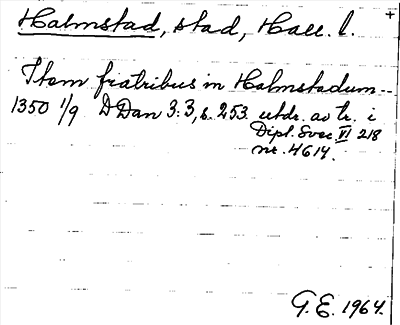 Halmstad, stad, Hall. l. +
Item fratribus in Halmstadum--
1350 1/9 DDan 3:3, s. 253. utdr. av tr. i
Dipl. Svec. VI 218
nr. 4614.
G.E. 1964.